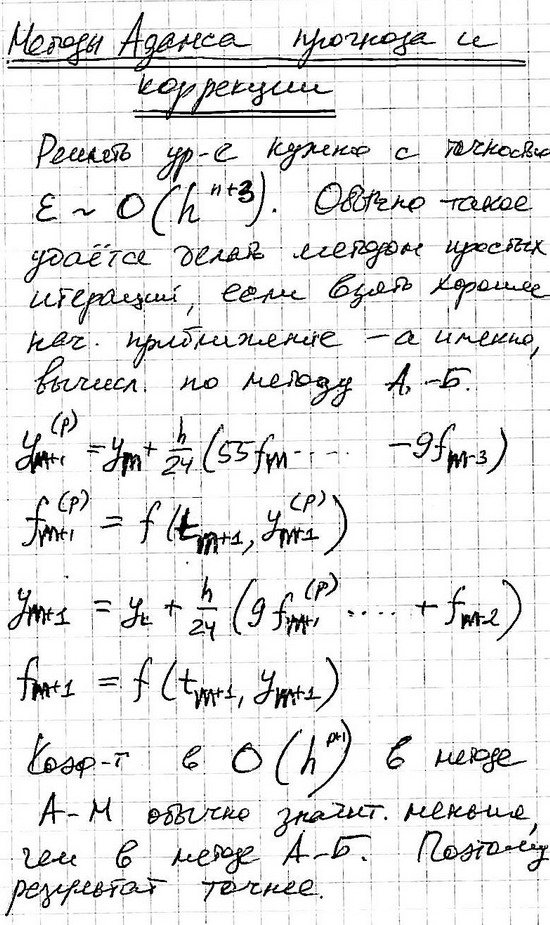 Методы Адамса прогноза и
коррекции
Решать ур-е нужно с точностью
ε ~ O(h^{n+3}). Обычно такое
удаётся делать методом простых
итераций, если взять хорошее
нач. приближение – а именно,
вычисл. по методу А.-Б.
y_{m+1}^{(p)} = y_m + h/24 (55f_m .... -9f_{m-3})
f_{m+1}^{(p)} = f(t_{m+1}, y_{m+1}^{(p)})
y_{m+1} = y_k + h/24 (9f_{m+1}^{(p)} .... + f_{m-2})
f_{m+1} = f(t_{m+1}, y_{m+1})
Коэф-т в O(h^{p+1}) в методе
А-М обычно значит. меньше,
чем в методе А-Б. Поэтому
результат точнее.